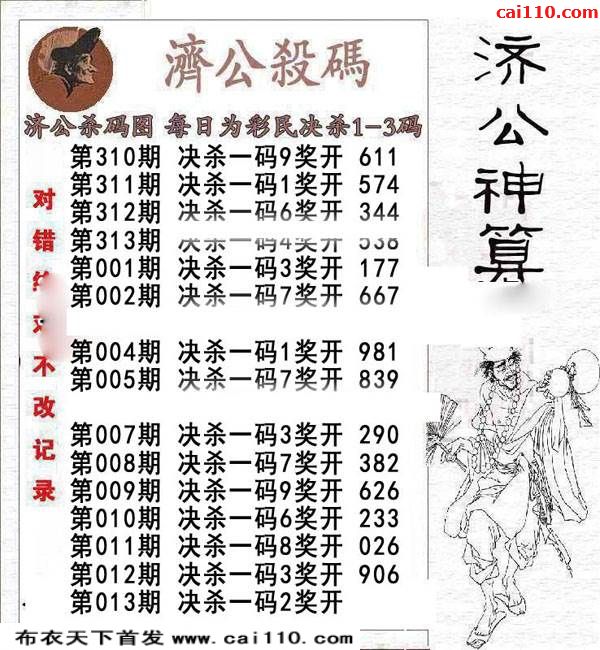 cai110.com
濟公殺碼
济公杀码图 每日为彩民决杀1-3码
第310期 决杀一码9奖开 611
第311期 决杀一码1奖开 574
第312期 决杀一码6奖开 344
第313期 决杀一码4奖开 538
第001期 决杀一码3奖开 177
第002期 决杀一码7奖开 667
第004期 决杀一码1奖开 981
第005期 决杀一码7奖开 839
第007期 决杀一码3奖开 290
第008期 决杀一码7奖开 382
第009期 决杀一码9奖开 626
第010期 决杀一码6奖开 233
第011期 决杀一码8奖开 026
第012期 决杀一码3奖开 906
第013期 决杀一码2奖开
对错
不改记录
济公神算
布衣天下首发 www.cai110.com